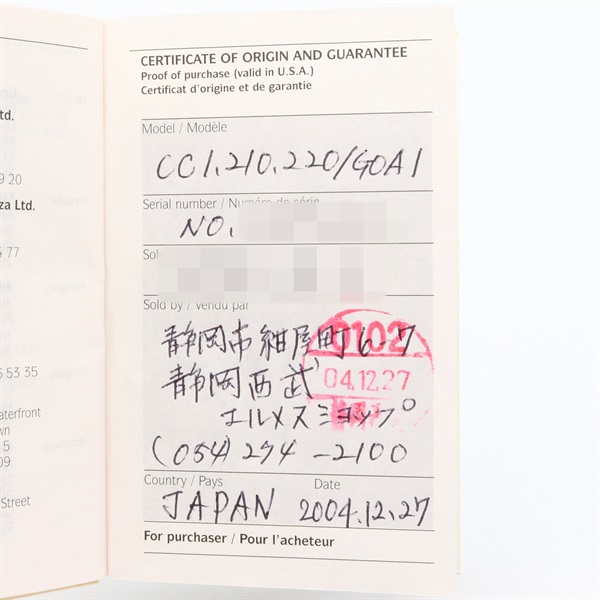 td.
9 20
za Ltd.
77
6 53 35
aterfront
wn
5
09
Street
CERTIFICATE OF ORIGIN AND GUARANTEE
Proof of purchase (valid in U.S.A.)
Certificat d'origine et de garantie
Model / Modèle
CC1.210.220/GOA1
Serial number / Numéro de série
NO.
Sol
Sold by / Vendu par
静岡市紺屋町6-7
0102
静岡西武
04.12.27
エルメスショップ
(054) 254-2100
Country / Pays
Date
JAPAN
2004.12.27
For purchaser / Pour l'acheteur